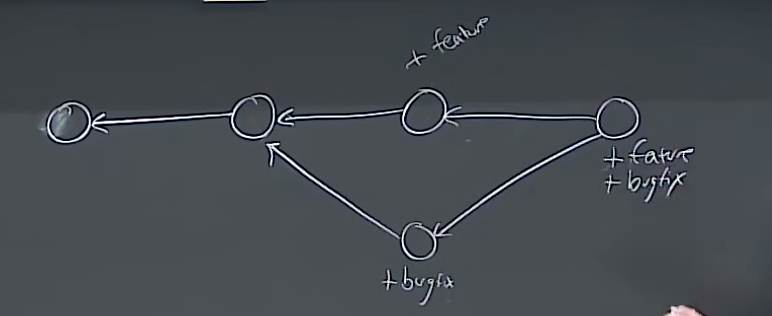 + feature
+ fature
+ bugfix
+ bugfix